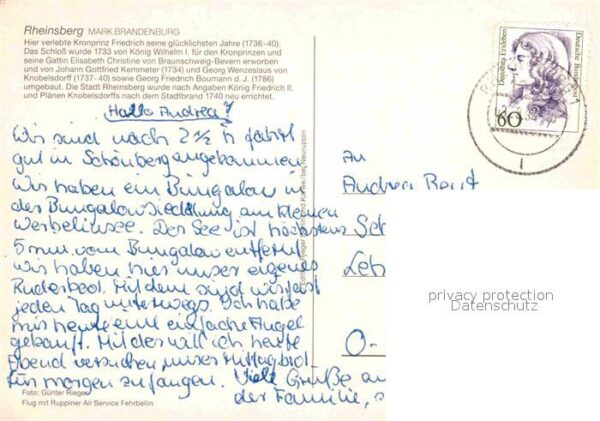 Rheinsberg MARK BRANDENBURG
Hier verlebte Kronprinz Friedrich seine glücklichsten Jahre (1736-40).
Das Schloß wurde 1733 von König Wilhelm I. für den Kronprinzen und
seine Gattin Elisabeth Christine von Braunschweig-Bevern erworben
und von Johann Gottfried Kemmeter (1734) und Georg Wenzeslaus von
Knobelsdorf (1737-40) sowie Georg Friedrich Boumann d. J. (1786)
umgebaut. Die Stadt Rheinsberg wurde nach Angaben König Friedrich II.
und Plänen Knobelsdorffs nach dem Stadtbrand 1740 neu errichtet.
Hallo Andrea!
Wir sind nach 2 1/2 h Fahrt
gut in Schönberg angekommen.
Wir haben ein Bungalow in
der Bungalowsiedlung am kleinen
Werbelinsee. Der See ist höchstens
5 min. vom Bungalow entfernt
wir haben hier unser eigenes
Ruderboot. Mit dem sind wir fast
jeden Tag unterwegs. Ich habe
mir heute eine einfache Angel
gekauft. Mit der will ich heute
Abend versuchen unser Mittagbrot
für morgen zu fangen. Viele Grüße an
der Familie,
Foto: Günter Rieger
Flug mit Ruppiner Air Service Fehrbellin
Deutsche Bundespost
60
An
Andrea
O-
privacy protection
Datenschutz